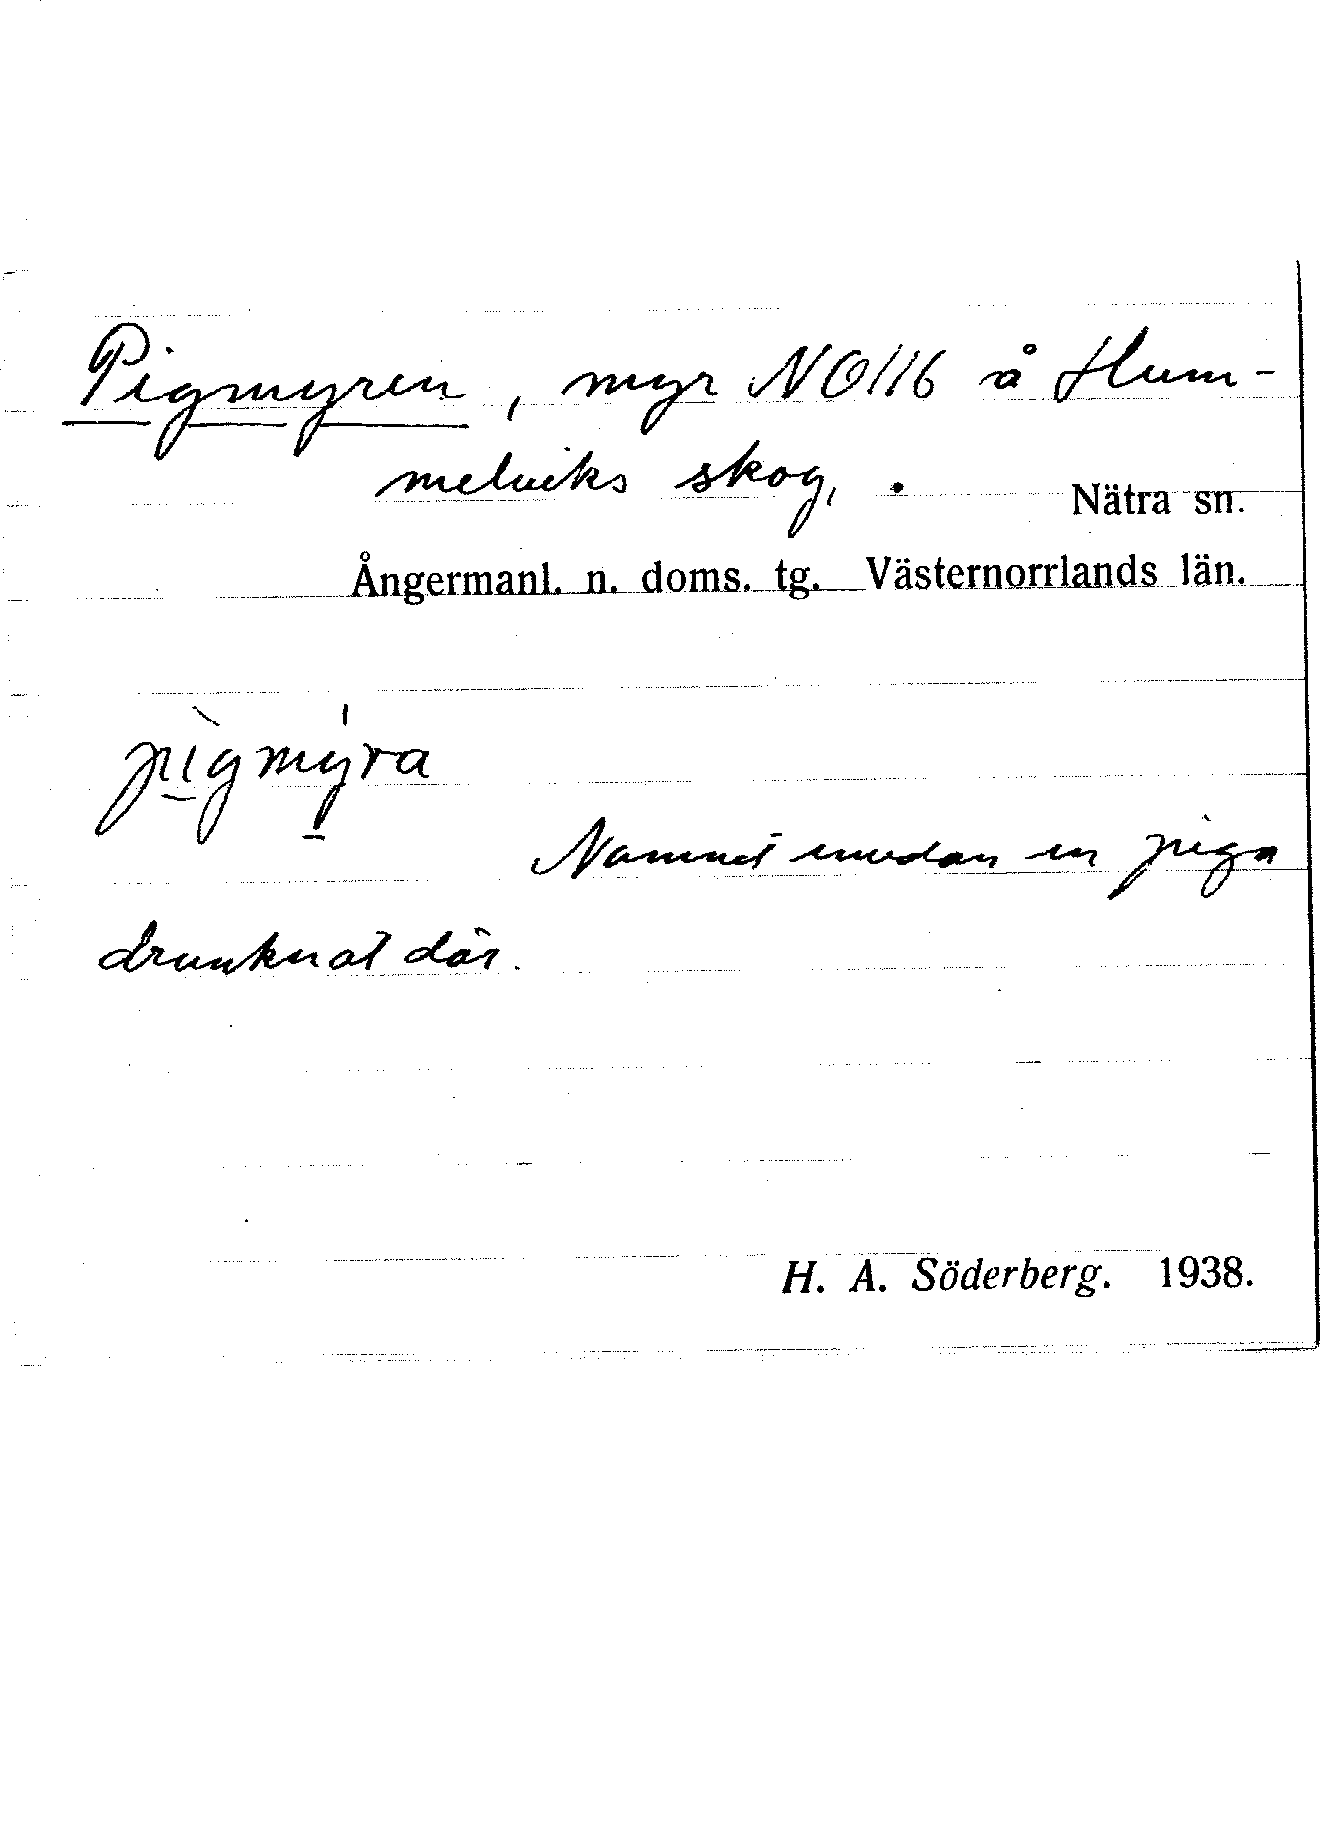 Pigmyren, myr NO116 å Hum-
melviks skog, . Nätra sn.
Ångermanl. n. doms. tg. Västernorrlands län.
pìgmýra
Namnet emedan en piga
drunknat där.
H. A. Söderberg. 1938.